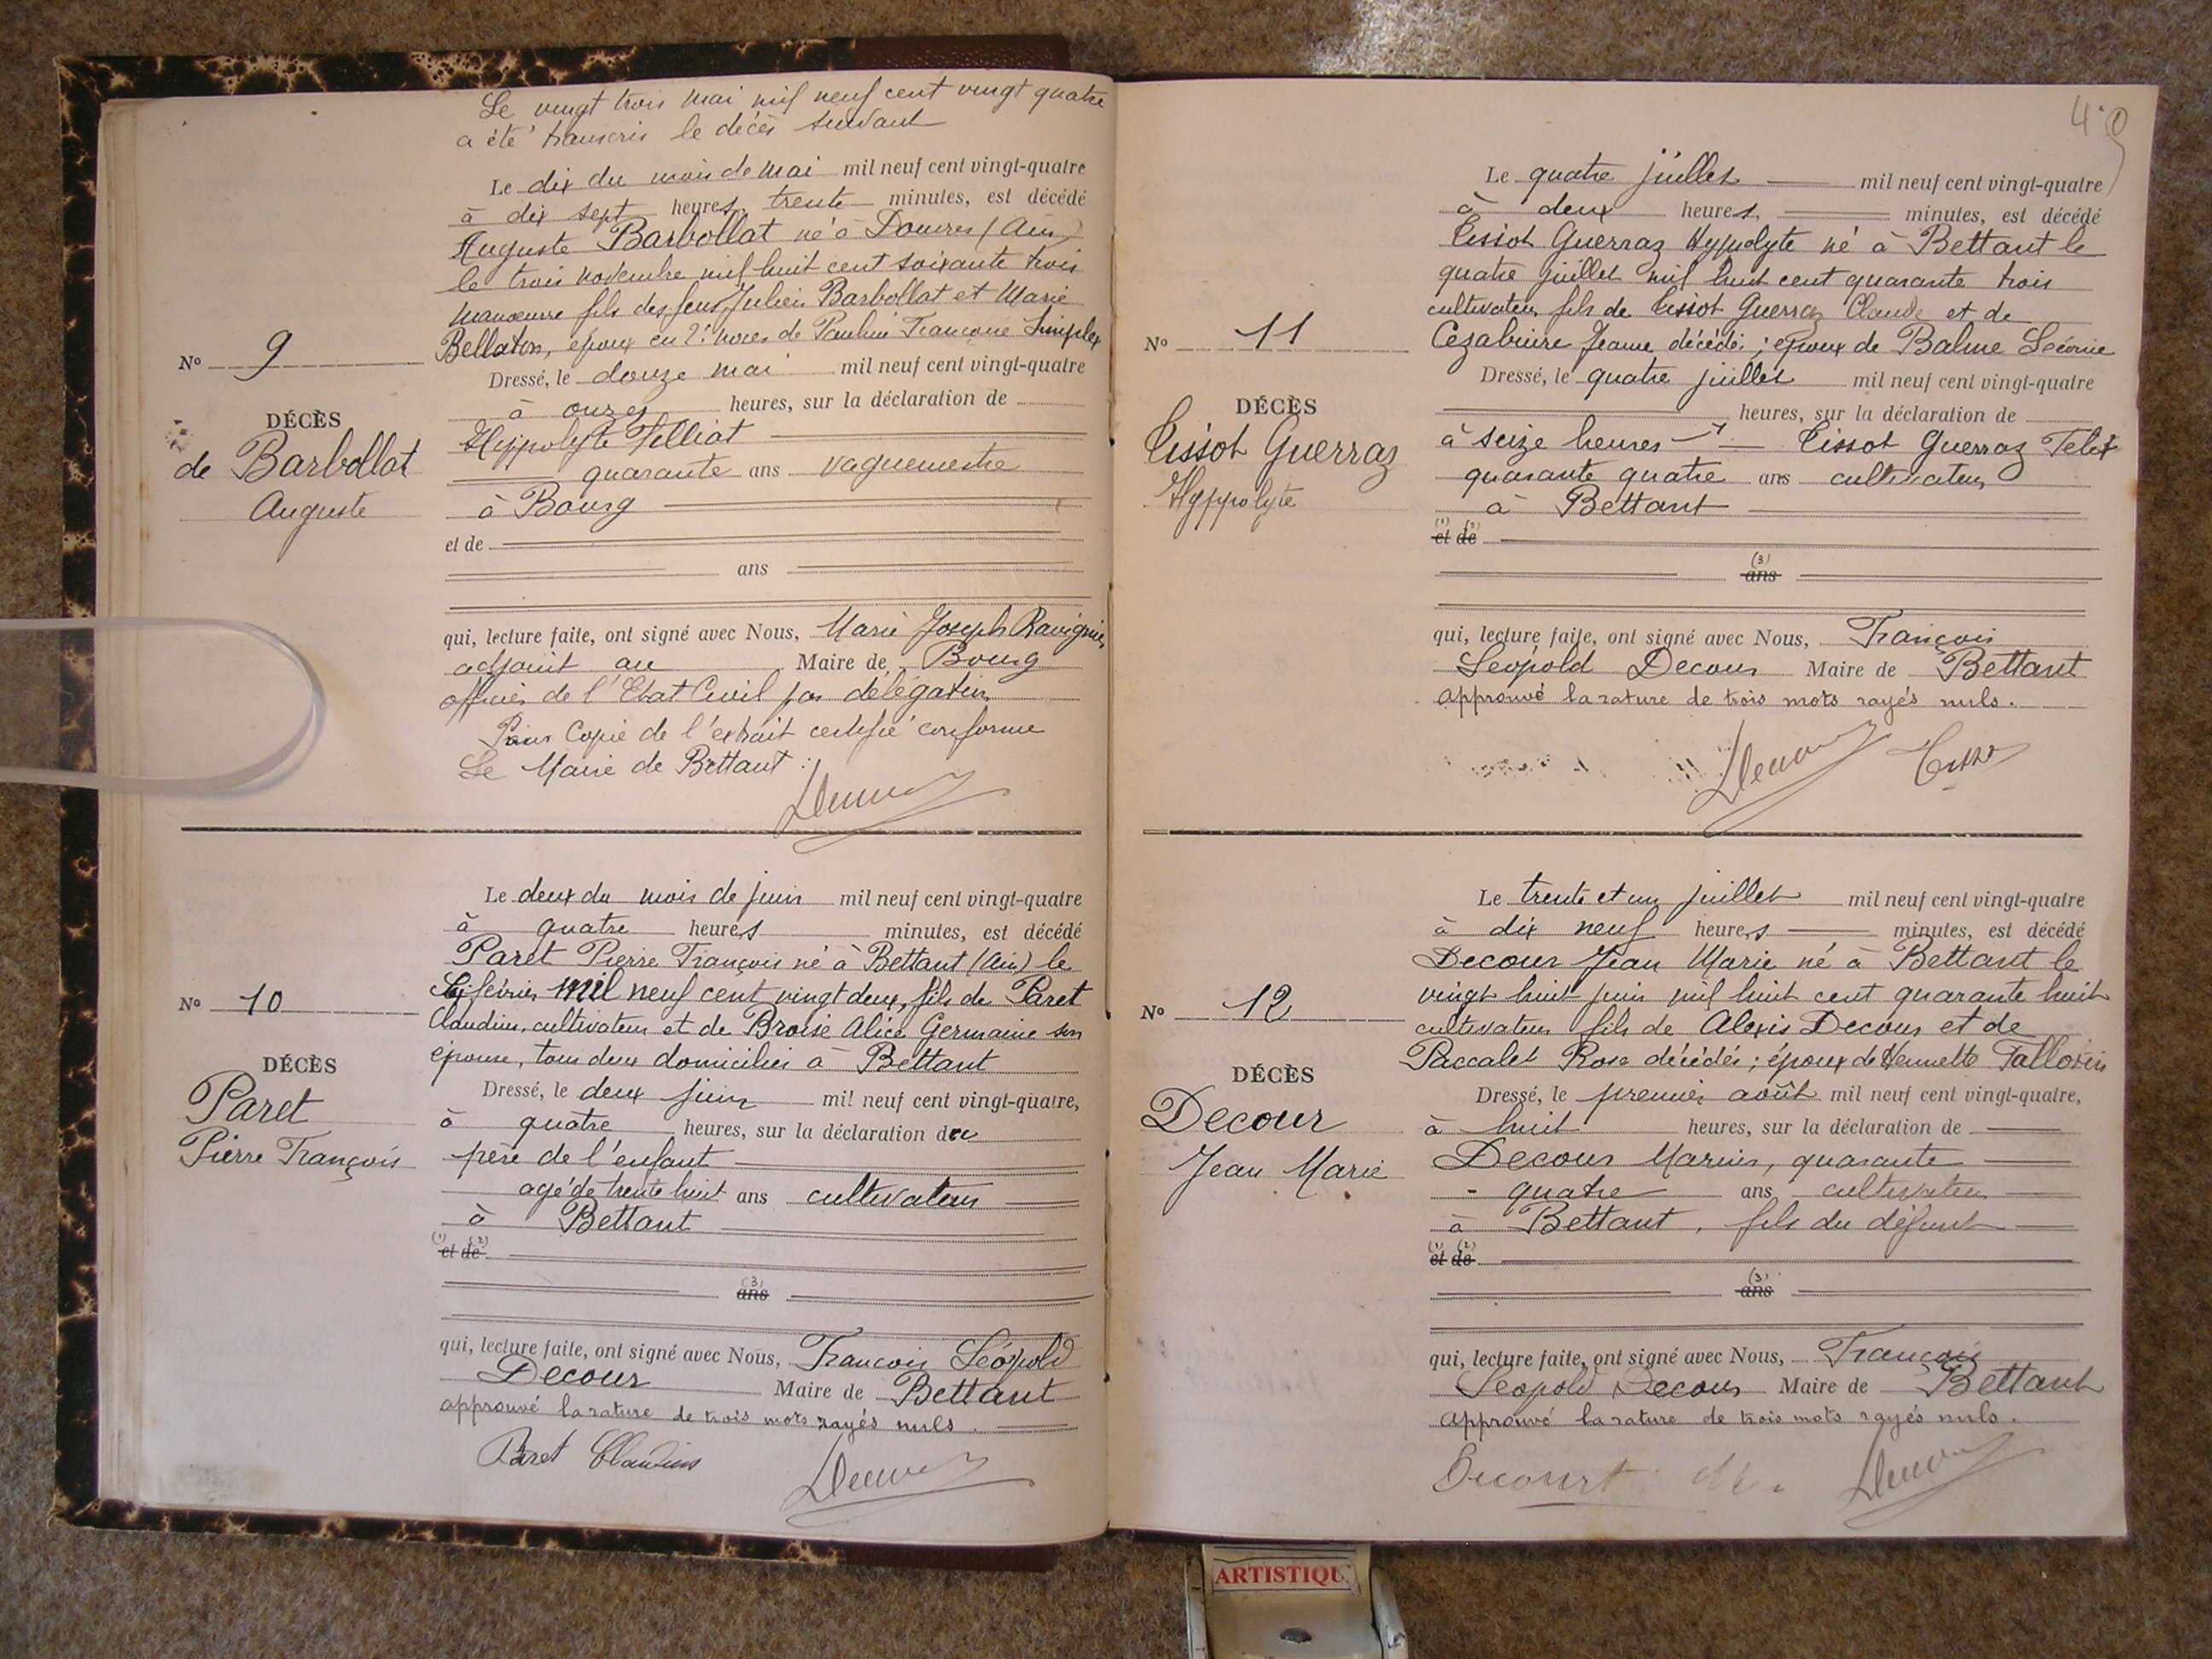 Le vingt trois mai mil neuf cent vingt quatre
a été transcris le décès suivant
Le dix du mois de mai mil neuf cent vingt-quatre
à dix sept heures, trente minutes, est décédé
Auguste Barbollat né à Douvres (Ain)
le trois novembre mil huit cent soixante trois
manœuvre fils des feus Julien Barbollat et Marie
Bellaton, époux en 2es noces de Pauline Françoise Simplex
No 9
Dressé, le douze mai mil neuf cent vingt-quatre
à onzes heures, sur la déclaration de
DÉCÈS
de Barbollat
Auguste
Hippolyte Telliat
quarante ans vaguemestre
à Bourg
et de
ans
qui, lecture faite, ont signé avec Nous, Marie Joseph Ravignier
adjoint au Maire de Bourg
officier de l'Etat Civil par délégation
Pour Copie de l'extrait certifié conforme
Le Maire de Bettant :
Le deux du mois de juin mil neuf cent vingt-quatre
à quatre heures minutes, est décédé
Paret Pierre François né à Bettant (Ain) le
février mil neuf cent vingt deux, fils de Paret
Claudius, cultivateur et de Broise Alice Germaine son
épouse, tous deux domiciliés à Bettant
No 10
DÉCÈS
Paret
Pierre François
Dressé, le deux juin mil neuf cent vingt-quatre,
à quatre heures, sur la déclaration du
père de l'enfant
agé de trente huit ans cultivateur
à Bettant
(1) (2)
et de
(3)
ans
qui, lecture faite, ont signé avec Nous, François Léopold
Decour Maire de Bettant
approuvé la rature de trois mots rayés nuls.
Paret Claudius
4
Le quatre juillet mil neuf cent vingt-quatre
à deux heures, minutes, est décédé
Tissot Guerraz Hyppolyte né à Bettant le
quatre juillet mil huit cent quarante trois
cultivateur fils de Tissot Guerraz Claude et de
Jeanne décédés; époux de Balme
No 11
DÉCÈS
Tissot Guerraz
Hyppolyte
Dressé, le quatre juillet mil neuf cent vingt-quatre
heures, sur la déclaration de
à seize heures Tissot Guerraz Felix
quarante quatre ans cultivateur
à Bettant
(1) (2)
et de
(3)
ans
qui, lecture faite, ont signé avec Nous, François
Leopold Decour Maire de Bettant
approuvé la rature de trois mots rayés nuls.
Le trente et un juillet mil neuf cent vingt-quatre
à dix neuf heures minutes, est décédé
Decour Jean Marie né à Bettant le
vingt huit juin mil huit cent quarante huit
cultivateur fils de Alexis Decour et de
Paccalet Rose décédés; époux de Hennette
No 12
DÉCÈS
Decour
Jean Marie
Dressé, le premier août mil neuf cent vingt-quatre,
à huit heures, sur la déclaration de
Decour Marius, quarante
- quatre ans cultivateur
à Bettant, fils du défunt
(1) (2)
et de
(3)
ans
qui, lecture faite, ont signé avec Nous, François
Léopold Decour Maire de Bettant
approuvé la rature de trois mots rayés nuls.
Decourt M.
ARTISTIQU